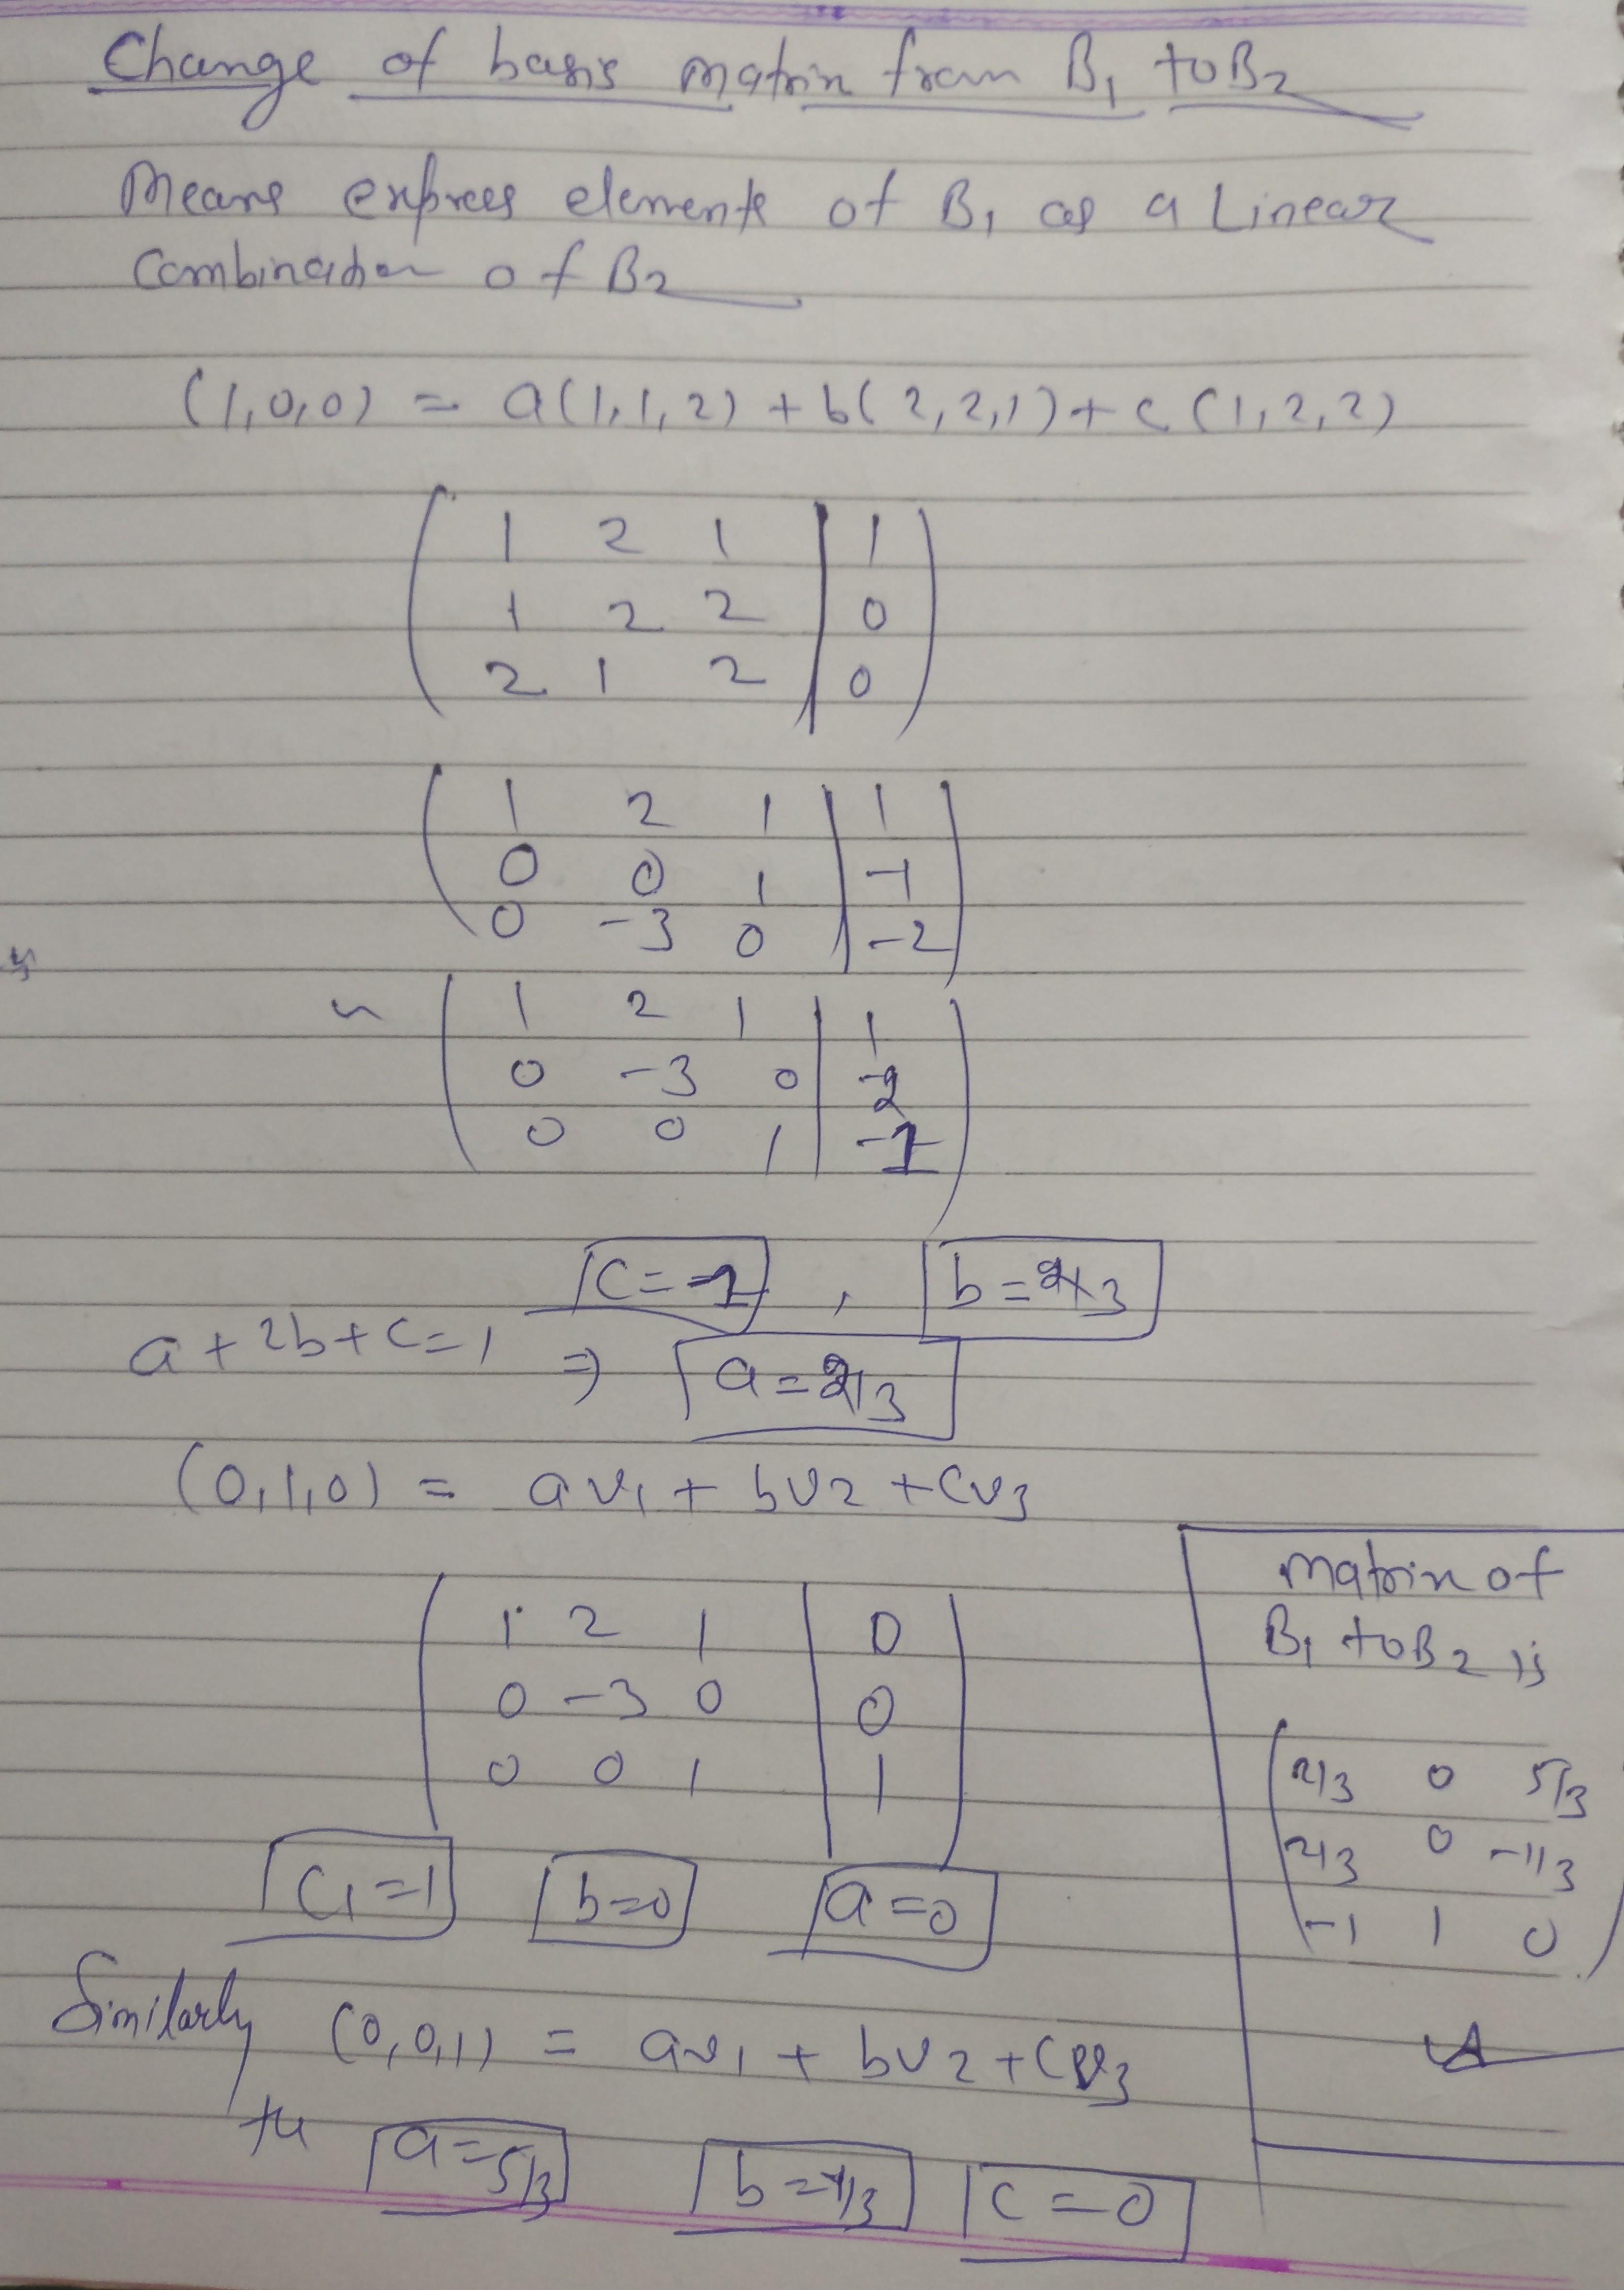 Change of basis matrix from B₁ to B₂
Means express elements of B₁ as a Linear
Combination of B₂
(1,0,0) = a(1,1,2) + b(2,2,1) + c(1,2,2)
1 2 1 | 1
1 2 2 | 0
2 1 2 | 0
1 2 1 | 1
0 0 1 | -1
0 -3 0 | -2
~ 1 2 1 | 1
0 -3 0 | -2
0 0 1 | -1
c = -1 , b = 2/3
a + 2b + c = 1 ⇒ a = 2/3
(0,1,0) = av₁ + bv₂ + cv₃
1 2 1 | 0
0 -3 0 | 0
0 0 1 | 1
c₁ = 1 b = 0 a = 0
Similarly (0,0,1) = av₁ + bv₂ + cv₃
a = 5/3 b = -1/3 c = 0
matrix of
B₁ to B₂ is
2/3 0 5/3
2/3 0 -1/3
-1 1 0